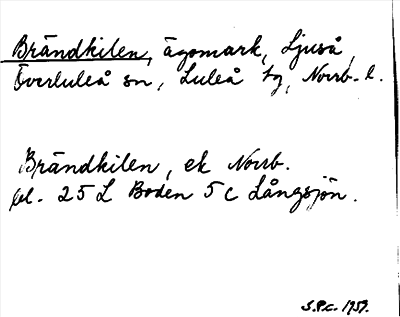 Brändkilen, ägomark, Ljuså,
Överluleå sn, Luleå tg, Norrb. l.
Brändkilen, ek Norrb.
bl. 25 L Boden 5 c Långsjön.
S.P.c. 1959.